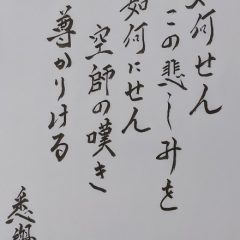 何せん
この悲しみを
如何にせん
空師の嘆き
尊かりける